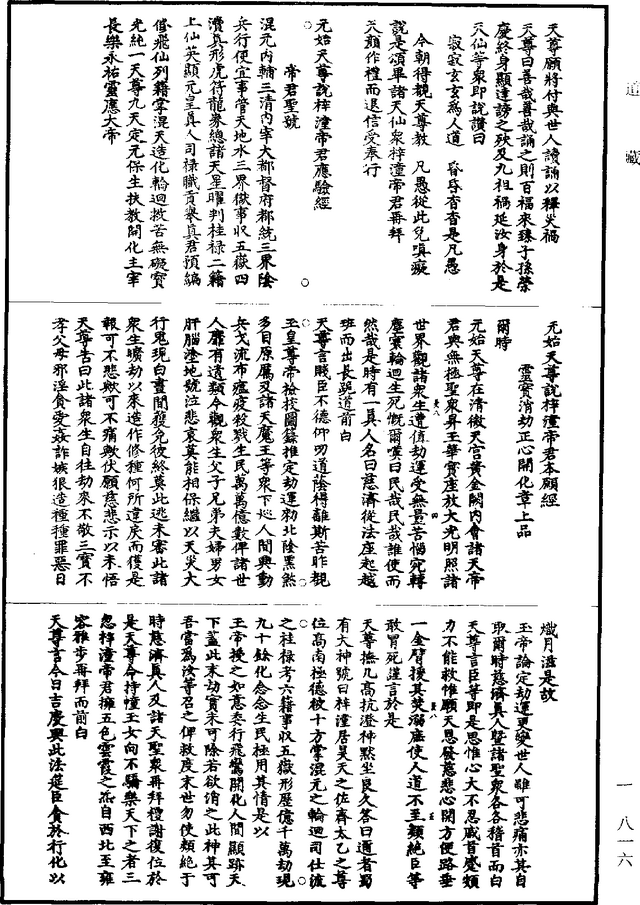 天尊願將付與世人讀誦以釋災禍
天尊曰善哉善哉誦之則百福來臻子孫榮
慶終身顯達謗之殃及九祖禍延汝身於是
天仙等衆即說讚曰
寂寂玄玄爲人道 昏昏杳杳是凡愚
今朝得覩天尊教 凡愚從此免嗔癡
說是頌畢諸天仙衆梓潼帝君再拜
天顏作禮而退信受奉行
元始天尊說梓潼帝君應驗經
帝君聖號
混元內輔三清內宰大都督府都統三界陰
兵行便宜事管天地水三界獄事收五嶽四
瀆真形虎符龍劵總諸天星曜判桂祿二籍
上仙英顯元皇真人司祿職貢舉真君預編
修飛仙列籍掌混天造化輪迴救苦無礙實
光純一天尊九天定元保生扶教開化主宰
長樂永祐靈應大帝
元始天尊說梓潼帝君本願經
靈寶消劫正心開化章上品
爾時
元始天尊在清微天宮黃金闕內會諸天帝
君與無極聖衆昇玉華寶座放大光明照諸
世界觀諸衆生遭值劫運受無量苦惱宛轉
塵寰輪迴生死慨爾嘆曰民哉民哉誰使而
然哉是時有一真人名曰慈濟從法座起越
班而出長跪道前白
天尊言賤臣不德仰叨道陰得離斯苦昨覩
玉皇尊帝檢校圖籙推定劫運勑北陰黑煞
多目原屬及諸天魔王等衆下巡人間興動
兵戈流布瘟疫殺戮生民萬萬億數俾諸世
人靡有遺類今觀衆生父子兄弟夫婦男女
肝腦塗地號泣悲哀莫能相保繼以天災大
行鬼現白晝間發免彼終莫此逃未審此諸
衆生曠劫以來造作修種何所違戾而獲是
報可不悲歟可不痛歟伏願慈悲示以未悟
天尊告曰此諸衆生自往劫來不敬三寶不
孝父母邪淫貪愛姦詐嫉狠造種種罪惡日
熾月滋是故
玉帝論定劫運更變世人雖可悲痛亦其自
取爾時慈濟真人暨諸聖衆各各稽首而白
天尊言臣等即是思惟心大不忍戚首蹙頞
力不能救惟願天恩發慈悲心開方便路垂
一金臂援其焚溺庶使人道不至類絕臣等
敢冒死謹言於是
天尊撫几高抗澄神默坐良久答曰適者蜀
有大神號曰梓潼居昊天之佐齊太乙之尊
位高南極德被十方掌混元之輪迴司仕流
之桂祿考六籍事收五嶽形歷億千萬劫現
九十餘化念念生民極用其情是以
玉帝授之如意委行飛鸞開化人間顯跡天
下蓋此末劫實未可除若欲消之此神其可
吾當爲汝等召之俾救度末世勿使類絕于
時慈濟真人及諸天聖衆再拜禮謝復位於
是天尊命持幢玉女向不驕樂天下之者三
忽梓潼帝君擁五色雲霞之炁自西北至雍
容雅步再拜而前白
天尊言今日吉慶興此法筵臣貪於行化以
道藏
一 八一六